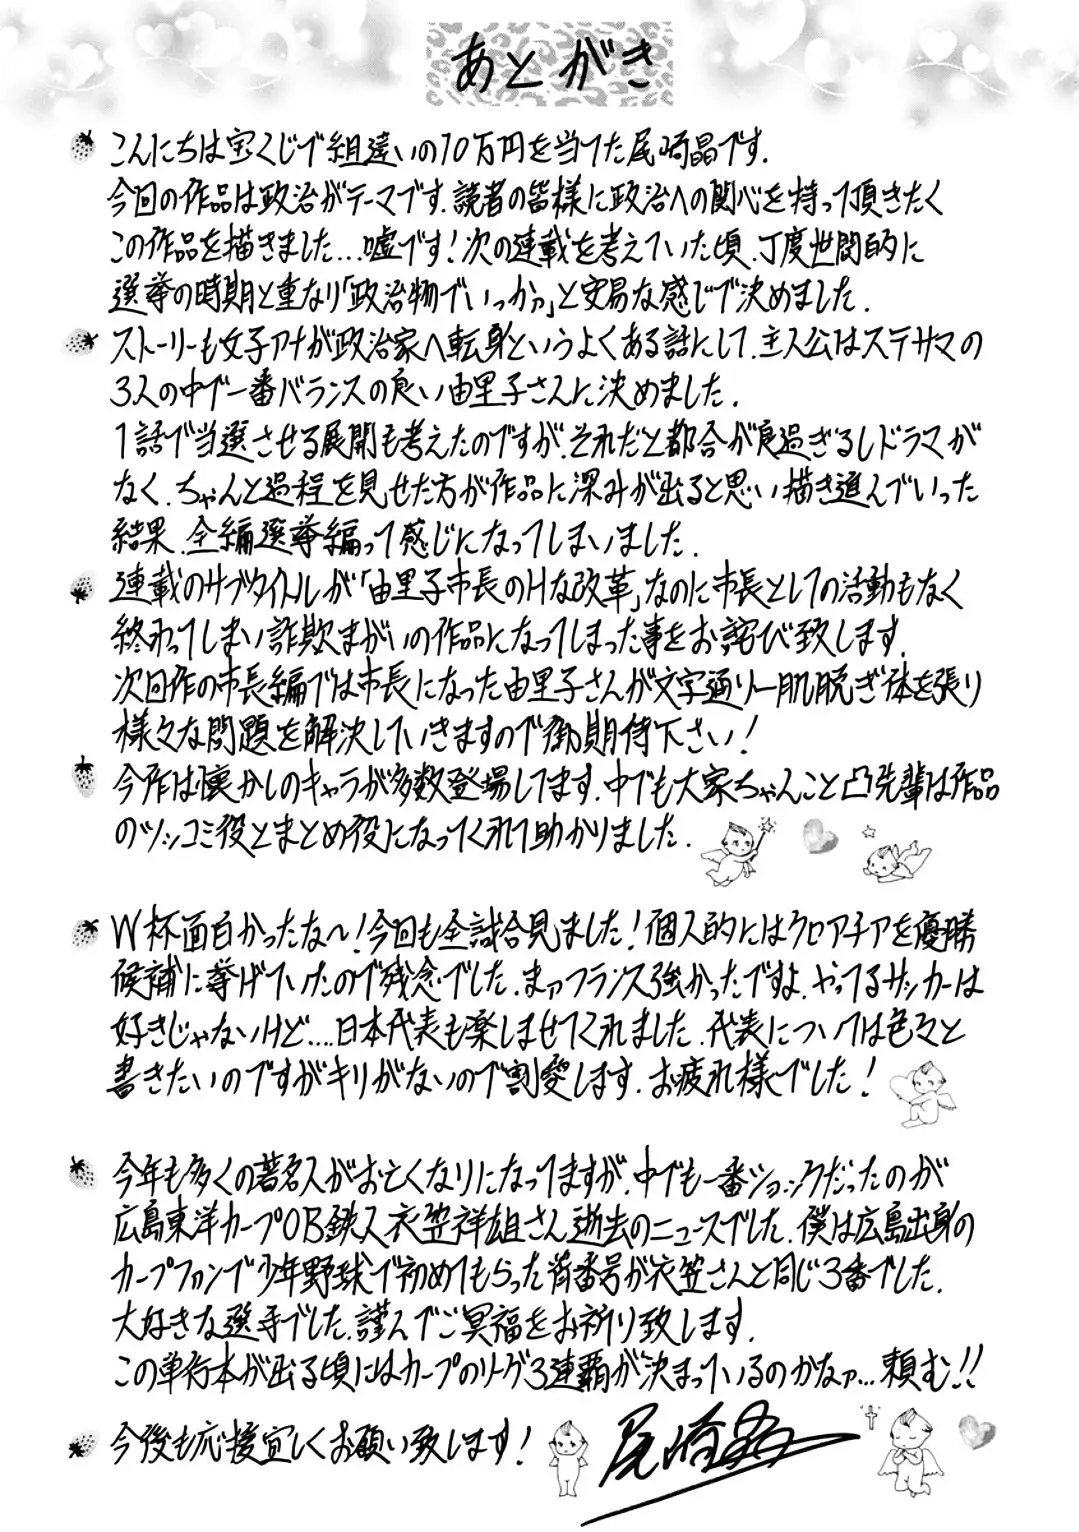 あとがき
こんにちは宝くじで組違いの10万円を当てた尾崎晶です.
今回の作品は政治がテーマです.読者の皆様に政治への関心を持って頂きたく
この作品を描きました...嘘です!次の連載を考えていた頃、丁度世間的に
選挙の時期と重なり「政治物でいっか」と安易な感じで決めました.
ストーリーも女子アナが政治家へ転身というよくある話にして、主人公はステサマの
3人の中で一番バランスの良い由里子さんに決めました.
1話で当選させる展開も考えたのですが、それだと都合が良過ぎるしドラマが
なく、ちゃんと過程を見せた方が作品に深みが出ると思い描き進んでいった
結果、全編選挙編って感じになってしまいました.
連載のサブタイトルが「由里子市長のHな改革」なのに市長としての活動もなく
終わってしまい詐欺まがいの作品となってしまった事をお詫び致します.
次回作の市長編では市長になった由里子さんが文字通り一肌脱ぎ体を張り
様々な問題を解決していきますので御期待下さい!
今作は懐かしのキャラが多数登場してます.中でも大家ちゃんこと凸先輩は作品
のツッコミ役とまとめ役になってくれて助かりました.
W杯面白かったな〜!今回も全試合見ました!個人的にはクロアチアを優勝
候補に挙げていたので残念でした.まァフランス強かったですよ.やってるサッカーは
好きじゃないけど....日本代表も楽しませてくれました.代表については色々と
書きたいのですがキリがないので割愛します.お疲れ様でした!
今年も多くの著名人がお亡くなりになってますが、中でも一番ショックだったのが
広島東洋カープOB鉄人衣笠祥雄さん逝去のニュースでした.僕は広島出身の
カープファンで少年野球で初めてもらった背番号が衣笠さんと同じ3番でした.
大好きな選手でした.謹んでご冥福をお祈り致します.
この単行本が出る頃にはカープのリーグ3連覇が決まっているのかなァ...頼む!!
今後も応援宜しくお願い致します!
尾崎晶